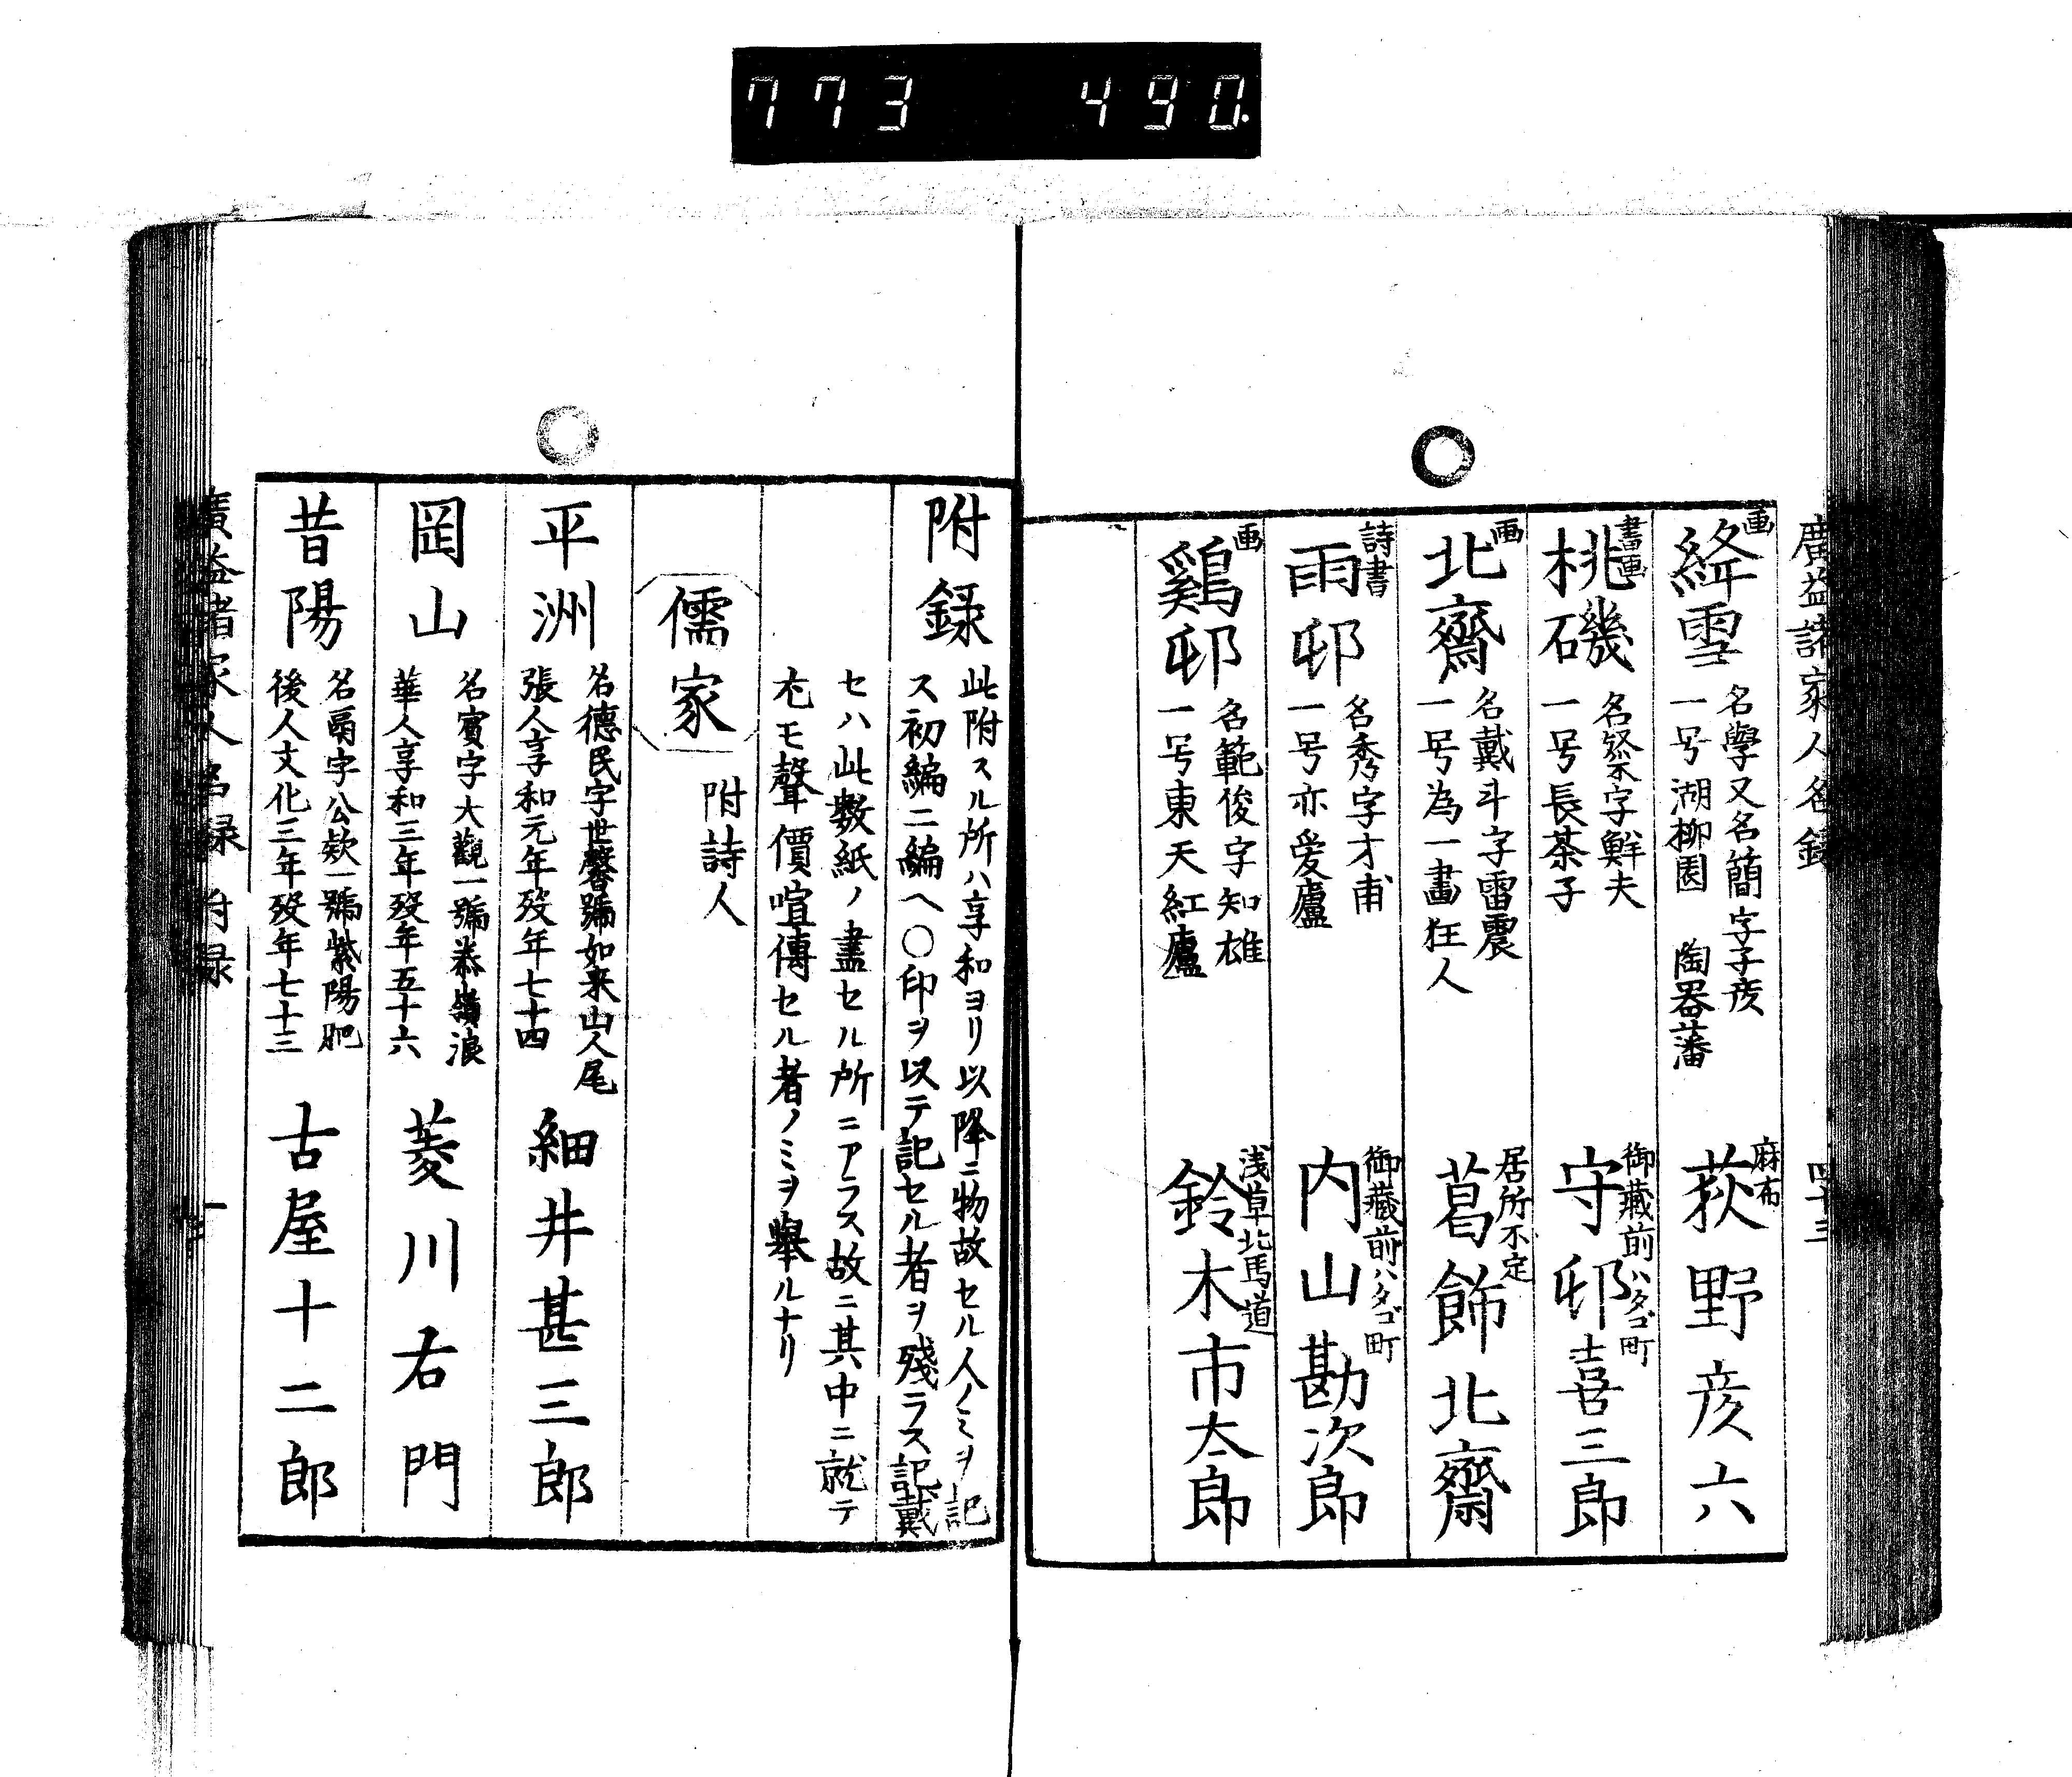 773 490.
廣益諸家人名録 四十三
画
絳雪
名學又名簡字子彦
一号湖柳園 陶器藩
麻布
荻野彦六
書画
桃磯
名祭字鮮夫
一号長茶子
御藏前ハタゴ町
守邨喜三郎
画
北齋
名戴斗字雷震
一号為一畫狂人
居所不定
葛飾北齋
詩書
雨邨
名秀字才甫
一号亦爱廬
御藏前ハタゴ町
内山勘次郎
画
鷄邨
名範俊字知雄
一号東天紅廬
浅草北馬道
鈴木市太郎
附録
此附スル所ハ享和ヨリ以降ニ物故セル人ノミヲ記
ス初編二編ヘ〇印ヲ以テ記セル者ヲ殘ラス記載
セハ此数紙ノ盡セル所ニアラス故ニ其中ニ就テ
尤モ聲價喧傳セル者ノミヲ舉ルナリ
儒家
附詩人
平洲
名德民字世馨號如来山人尾
張人享和元年歿年七十四
細井甚三郎
岡山
名賓字大觀一號恭嶺浪
華人享和三年歿年五十六
菱川右門
昔陽
名鬲字公欵一號紫陽肥
後人文化三年歿年七十三
古屋十二郎
廣益諸家人名録 附録 一